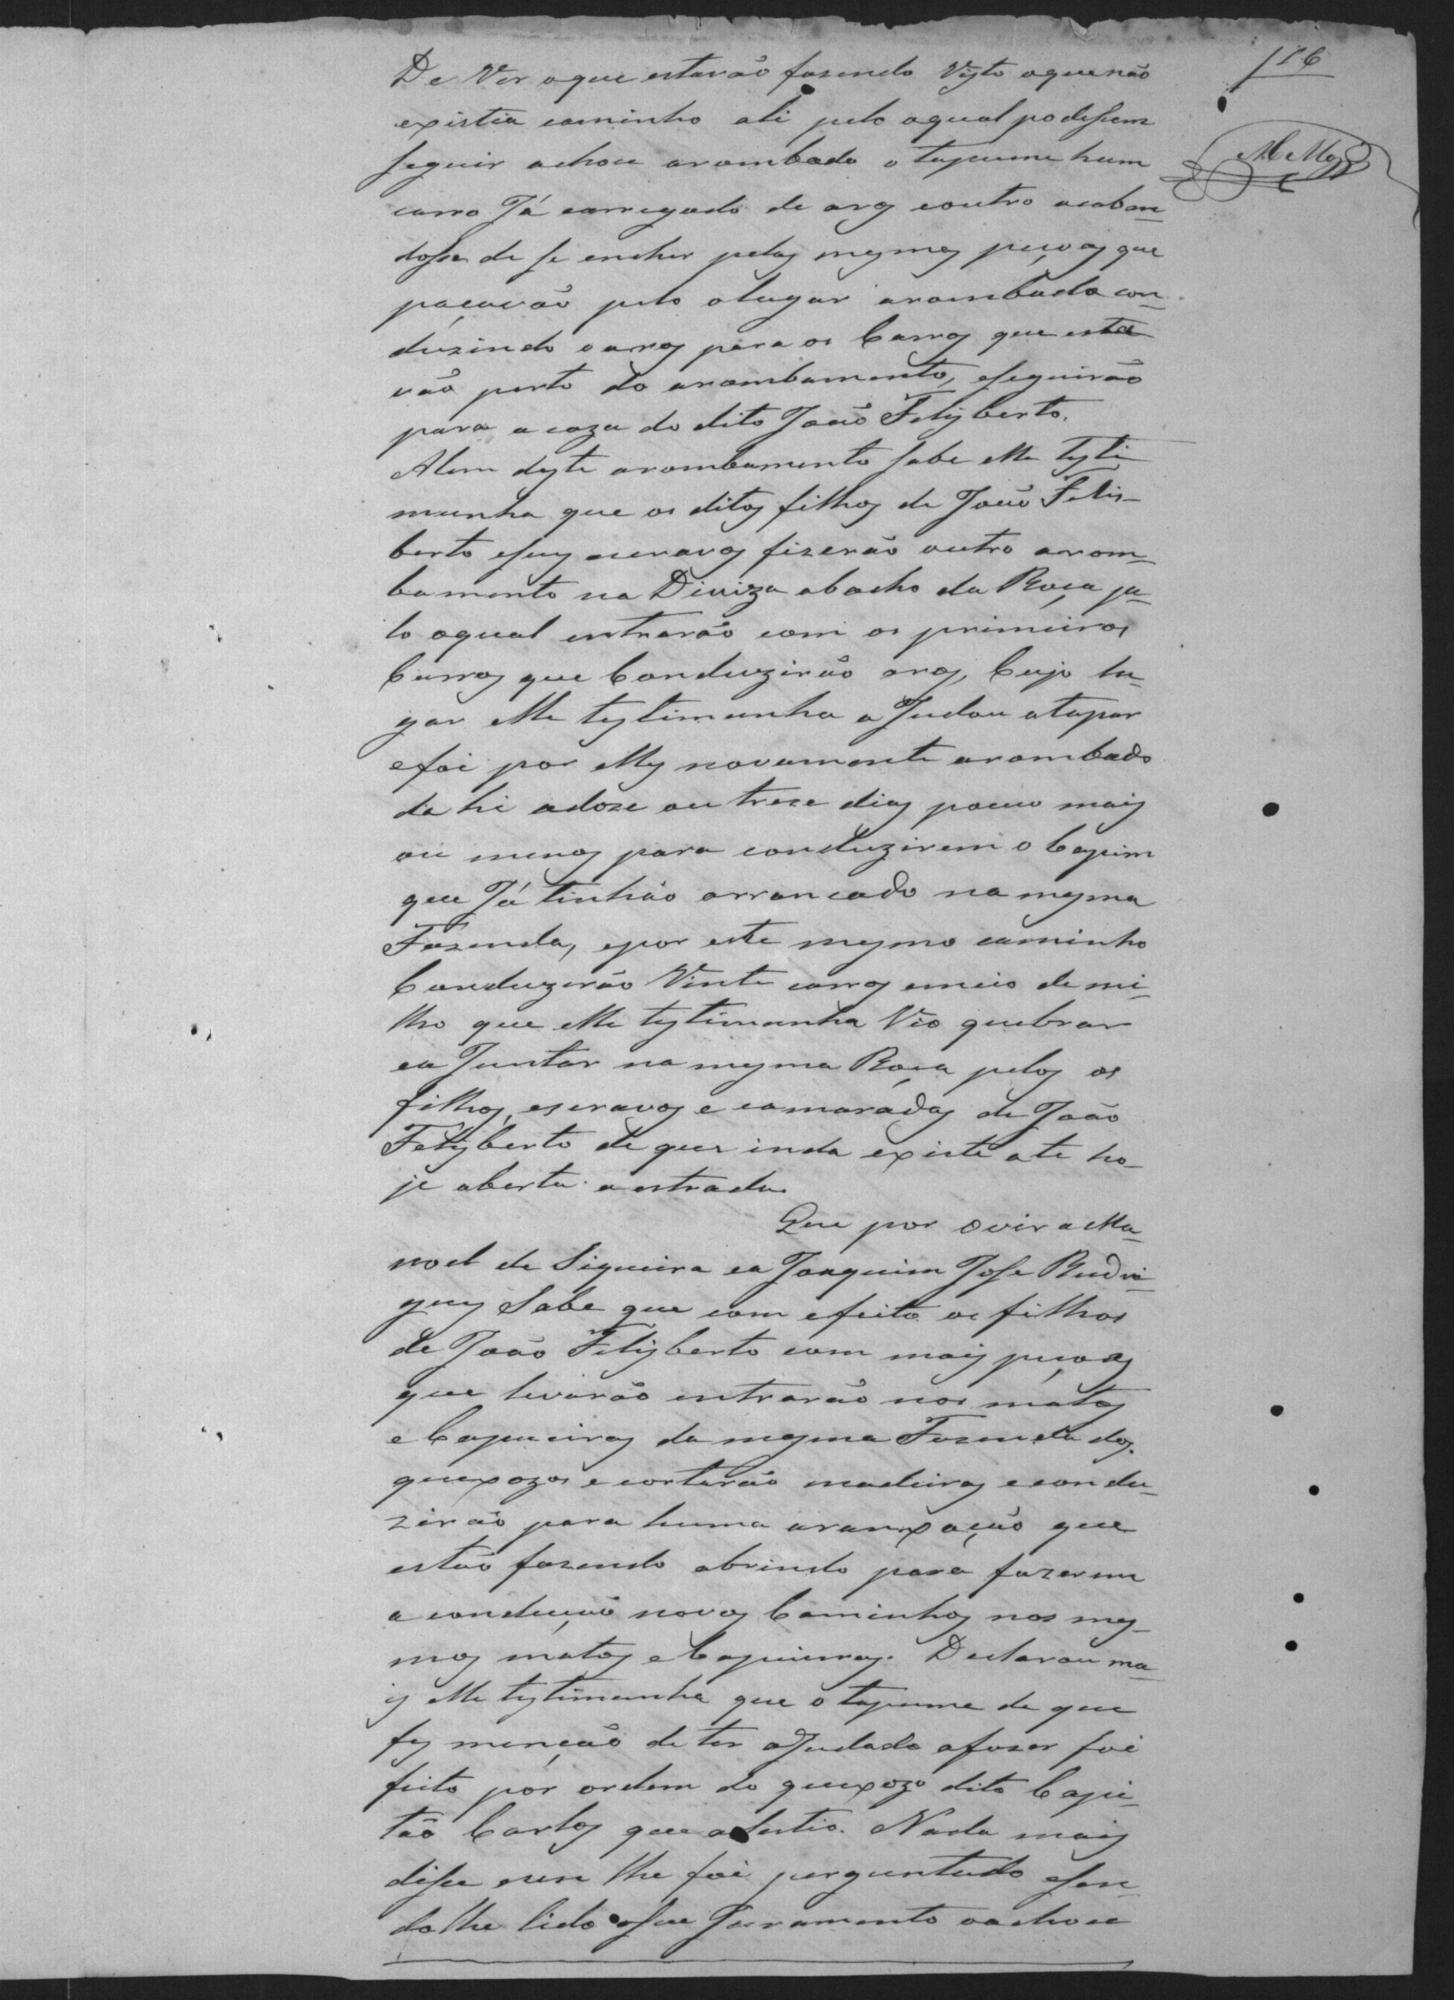 116
De Ver oque estavão fasendo Visto aque não
existia caminho ali pelo oqual podessem
seguir achou arombado o tapume hum
carro Já carregado de aros e outro acaban-
dosse de se encher pelas mesmas peçoas que
paçavão pelo olugar arombado con-
dusindo o arros para os Carros que esta
vão perto do arombamento, eseguirão
para a caza do dito João Felisberto.
Alem deste arombamento sabe elle testi
munha que os ditos filhos de João Felis-
berto eseus escravos fizerão outro arom-
bamento na Diviza abacho da Roça pe-
lo oqual entrarão com os primeiros
Carros que Conduzirão aros, Cujo lu-
gar elle testimunha aJudou atapar
efoi por elles novamente arombado
da hi adose ou trese dias pouco mais
ou menos para conduzirem o Capim
que Já tinhão arrancado na mesma
Fazenda, epor este mesmo caminho
Conduzirão Vinte carros emeio de mi-
lho que elle testimunha Vio quebrar
ea Juntar na mesma Roça pelos os
filhos, escravos e camaradas de João
Felisberto de que inda existe ate ho-
je aberta a estrada.
Que por ovir a Ma-
noel de Siqueira ea Joaquim Jose Rudri-
gues Sabe que com efeito os filhos
de João Felisberto com mais peçoas
que levarão entrarão nos matos
e Capueiras da mesma Fazenda dos
quexozos e cortarão madeiras econdu-
zirão para huma aranxação que
estão fazendo abrindo para fazerem
a condução novos Caminhos nos mes-
mos matos e Capueiras. Declarou ma-
is elle testimunha que o tapume de que
fes menção de ter aJudado afazer foi
feito por ordem do quexozo dito Capi-
tão Carlos que asestio. Nada mais
disse nem lhe foi perguntado esen-
dolhe lido oseu Juramento oachou